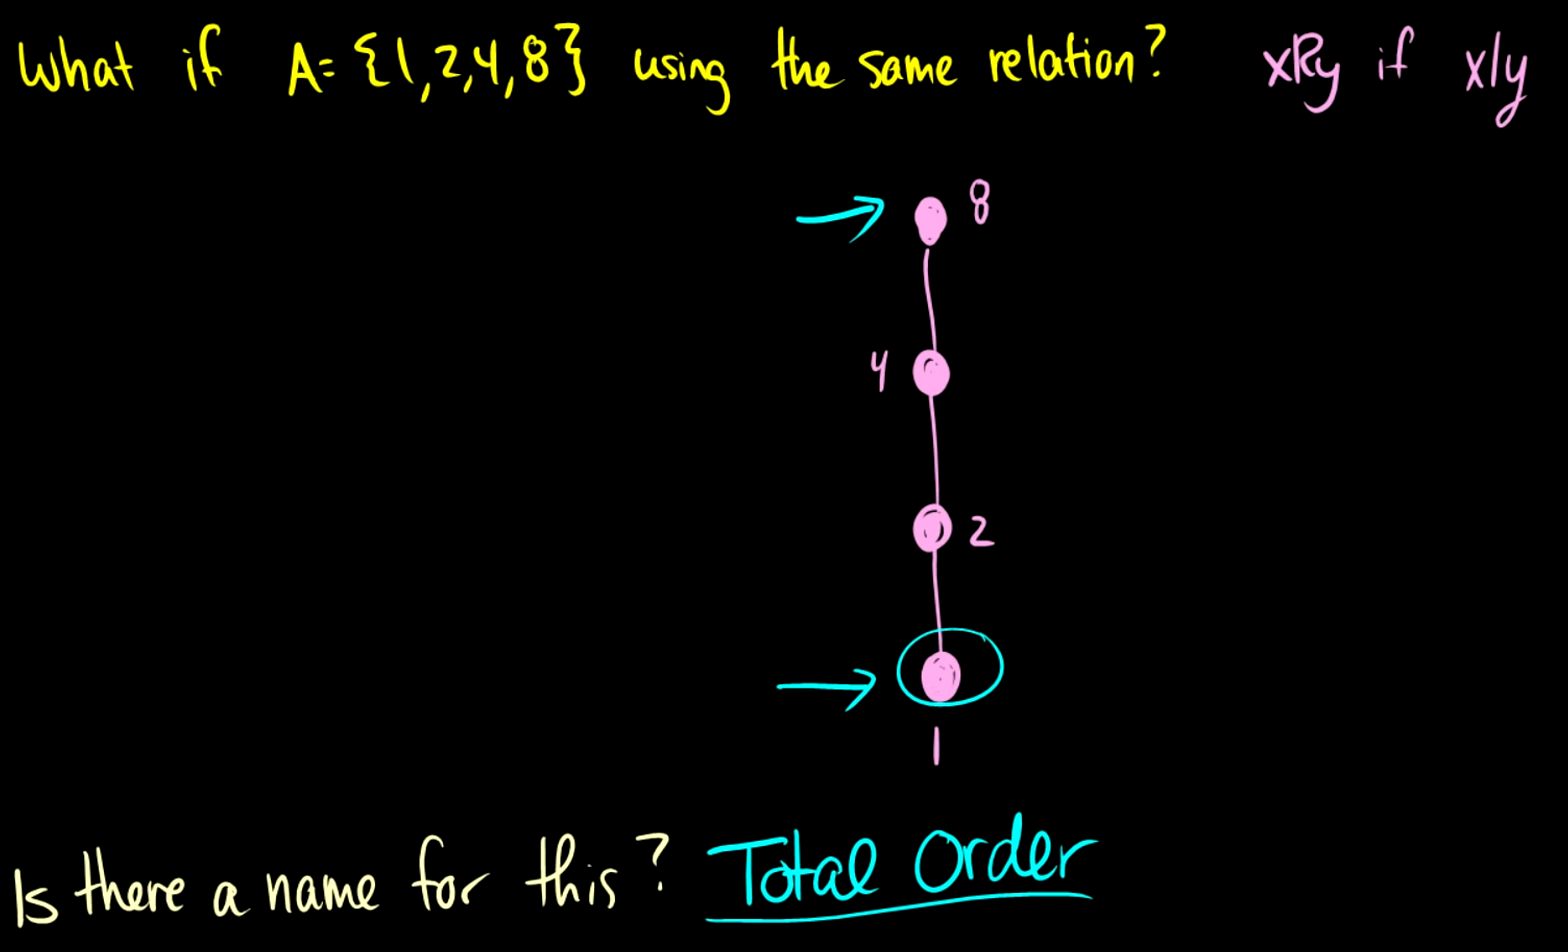 What if A= {1,2,4,8} using the same relation? xRy if x|y
8
4
2
1
Is there a name for this? Total Order